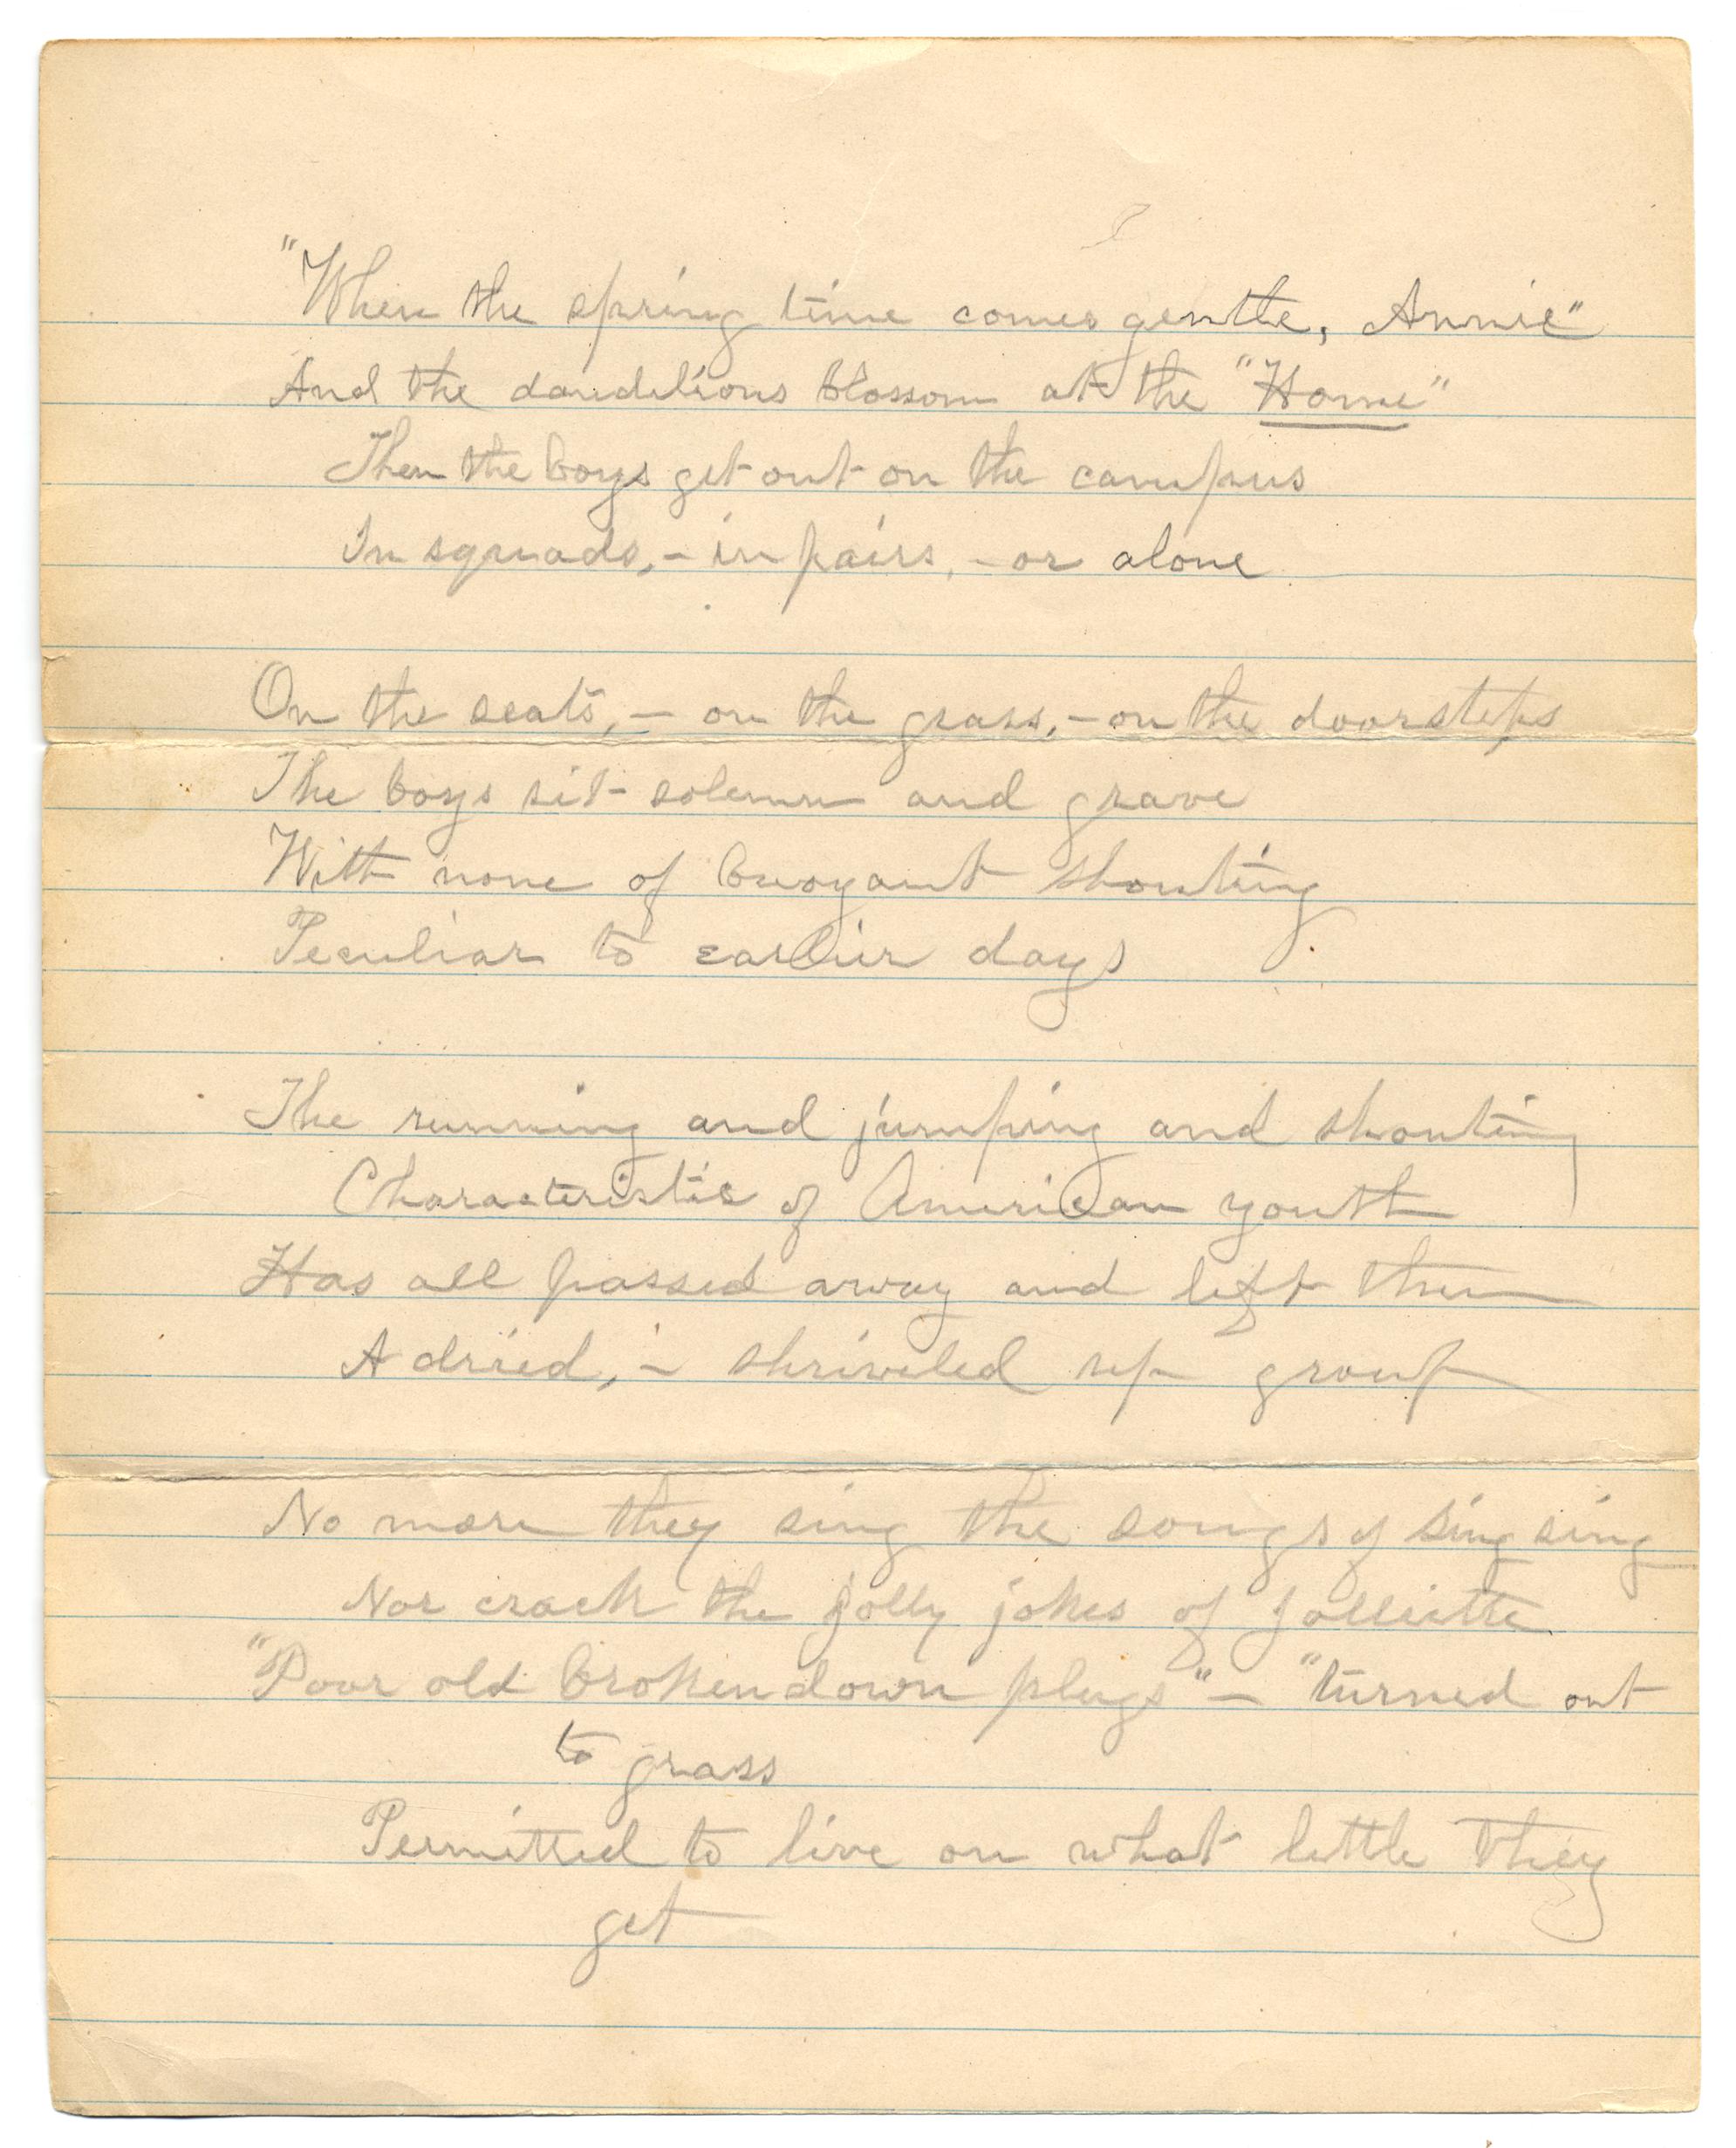 "When the spring time comes gentle, Annie"
And the dandelions blossom at the "Home"
Then the boys get out on the campus
In squads, - in pairs, - or alone
On the seats, - on the grass, - on the doorsteps
The boys sit solemn and grave
With none of buoyant shouting
Peculiar to earlier days
The running and jumping and shouting
Characteristic of American youth
Has all passed away and left them
A dried, - shriveled up group
No more they sing the songs of Sing sing
Nor crack the jolly jokes of Jolliette
"Poor old broken down plugs" - "turned out
to grass
Permitted to live on what little they
get